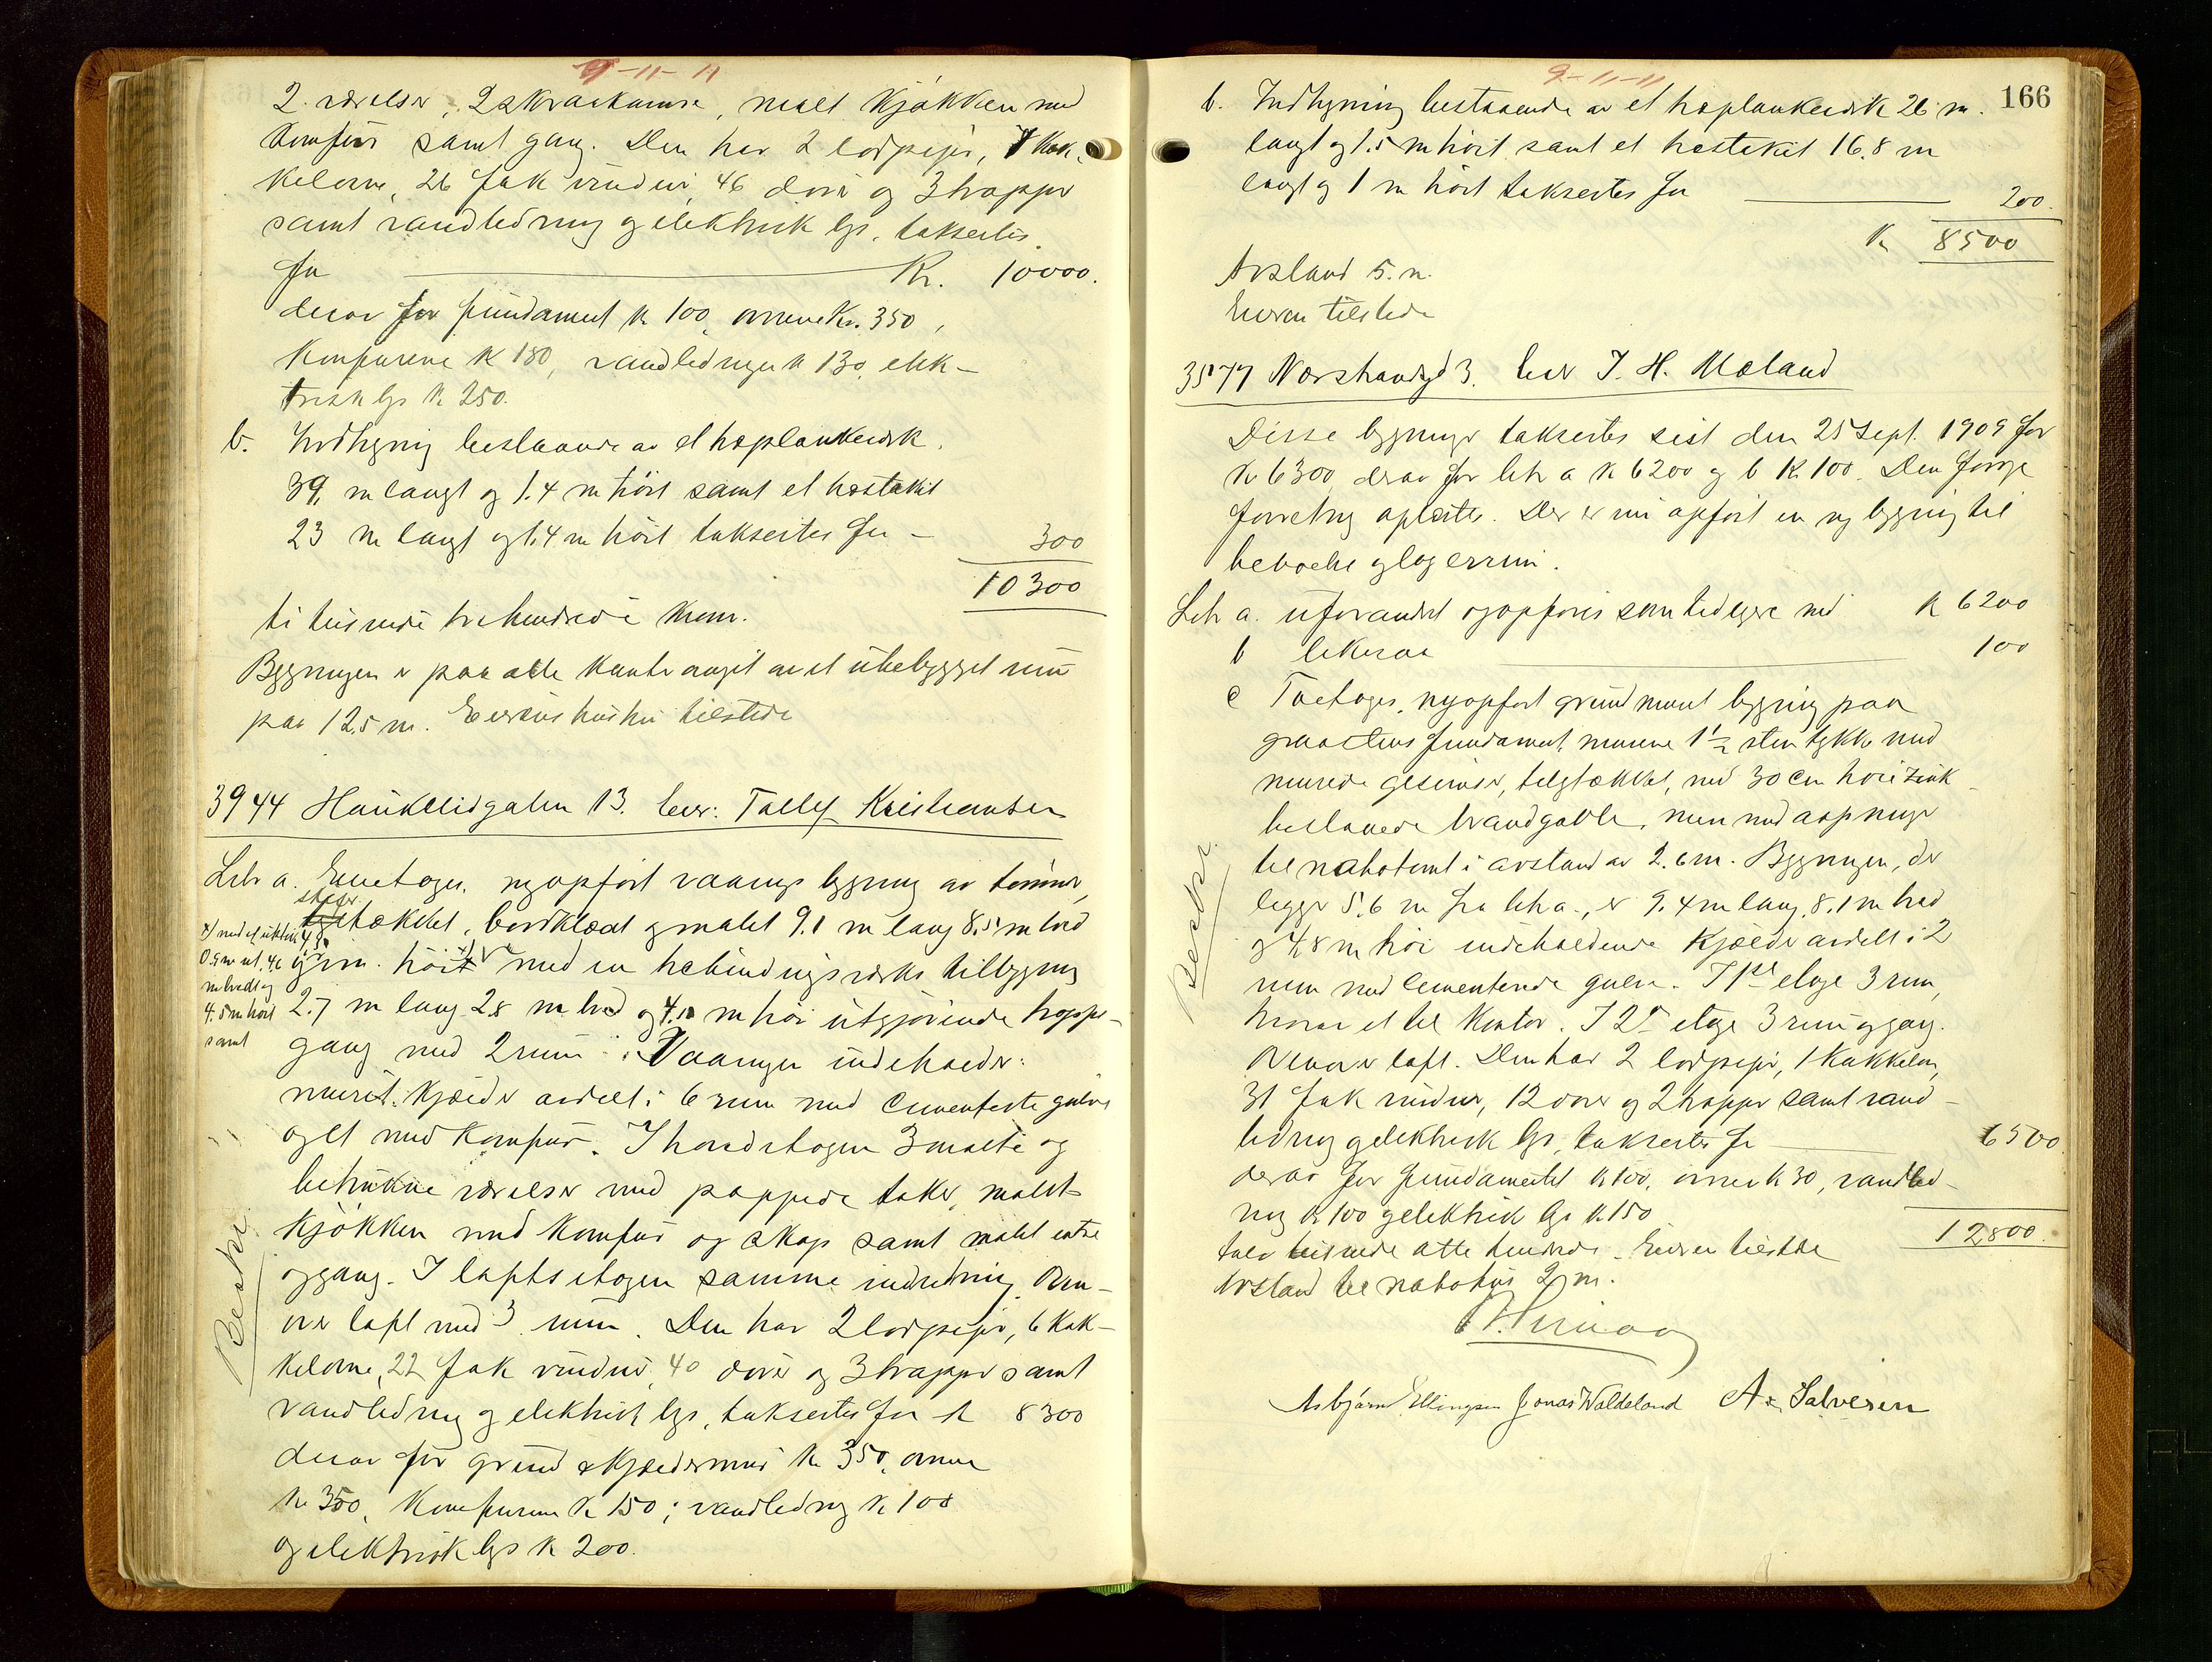 9-11-11
2 værelser, 2 skraakamre, malt kjøkken med
komfur samt gang. Den har 2 lodpiper, 7 kak-
kelovne, 26 fak vinduer, 46 dører og 3 trapper
samt vandledning og elektrisk lys, takseres
for Kr. 10000.
derav for fundament kr 100, ovnene Kr. 350,
Komfurene kr 180, vandledningen kr 130, elek-
trisk lys kr 250.
b. Indhegning bestaaende av et høplankeverk
39 m langt og 1.4 m høit samt et hestakit
23 m langt og 1.4 m høit takseres for - 300
10300
ti tusinde tre hundrede kroner.
Bygningen er paa alle kanter omgit av et ubebygget rum
paa 12,5 m. Eierens hustru tilstede
3944 Haukelidgaten 13. Eier: Tallef Kristiansen
Litr a. Enetages, nyopført vaanings bygning av tømmer,
skifer
tegltækket, bordklædt og malet 9.1 m lang 8.5 m bred
x) med et utbyg 4,8
0.9 m ut, 4,6 og m. høi x) med en utbindingsverks tilbygning
m bredt og
4.5 m høit 2.7 m lang 2.8 m bred og 4.10 m høi utgjørende trappe-
samt gang med 2 rum. Vaaningen indeholder:
muret kjælder avdelt i 6 rum med cementerte gulve
og et med komfur. I hovedetagen 3 malte og
betrukne værelser med pappede taker, malet
Beskr. kjøkken med komfur og skap samt malet entre
og gang. I loftsetagen samme indredning. Oven-
over loft med 3 rum. Den har 2 lodpiper, 6 kak-
kelovne, 22 fak vinduer, 40 dører og 3 trapper samt
vandledning og elektrisk lys, takseres for kr 8300
derav for grund & kjældermur kr 350, ovnene
kr 300, Komfurene kr 150, vandledning kr 100
og elektrisk lys kr 200.
9-11-11
166
b. Indhegning bestaaende av et høplankeverk 26 m.
langt og 1.5 m høit samt et hestakit 16.8 m
langt og 1 m høit takseres for 200.
Kr 8500
Avstand 5 m.
Eieren tilstede
3577 Nørstrandgd 3. Eier J. H. Mæland
Disse bygninger takseres sist den 25 Sept. 1909 for
kr 6300 derav for litr a kr 6200 og b Kr 100. Den forrige
forretning oplæstes. Der er nu opført en ny bygning til
beboelse og lagerrum.
Litr a. uforandret og opføres som tidligere med kr 6200
b likesaa 100
c Toetages, nyopført grundmuret bygning paa
graastens fundament, murene 1 1/2 sten tykke med
murede gesimser, teglstækket, med 30 cm høi zink
beslaaede brandgavle, men med aapninger
til nabotomt i avstand av 2.6 m. Bygningen, der
ligger 5.6 m fra litr a., er 9.4 m lang, 8.1 m bred
Beskr. og 4,8 m høi indeholdende Kjælder avdelt i 2
rum med cementerede gulve. I 1ste etage 3 rum,
hvorav et til kontor. I 2n etage 3 rum og gang.
Ovenover loft. Den har 2 lodpiper, 1 kakkelovn,
31 fak vinduer, 12 dører og 2 trapper samt vand-
ledning og elektrisk lys, takseres for 6500
derav for fundamentet kr 100, ovnen kr 30, vandled-
ning kr 100 og elektrisk lys kr 150
12800.
tolv tusinde otte hundrede. Eieren tilstede
Avstand til nabohus 2 m.
Asbjørn Ellingsen Jonas Waldeland A. Salvesen